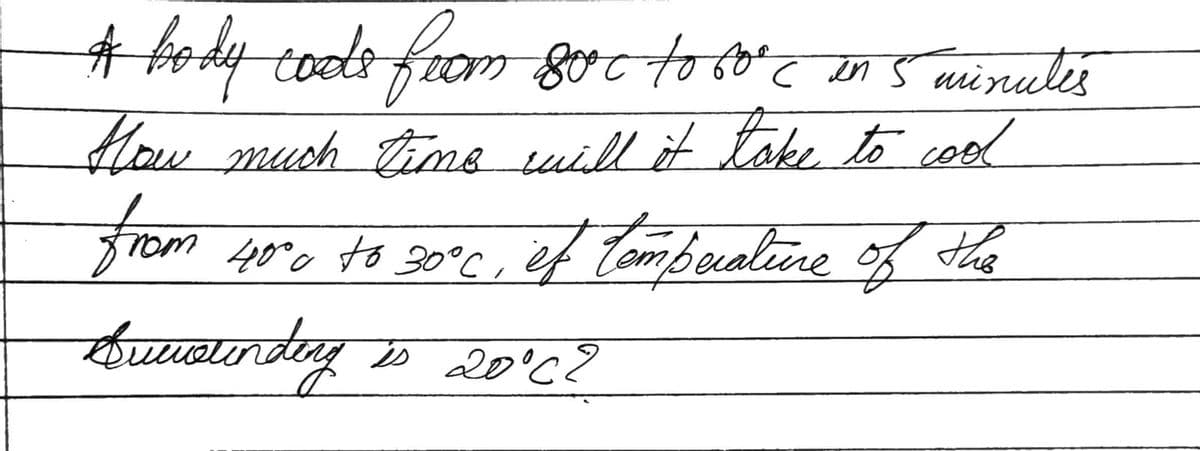 A body cools from 80°C to 60°C in 5 minutes
How much time will it take to cool
from 40°C to 30°C, if temperature of the
Surrounding is 20°C?